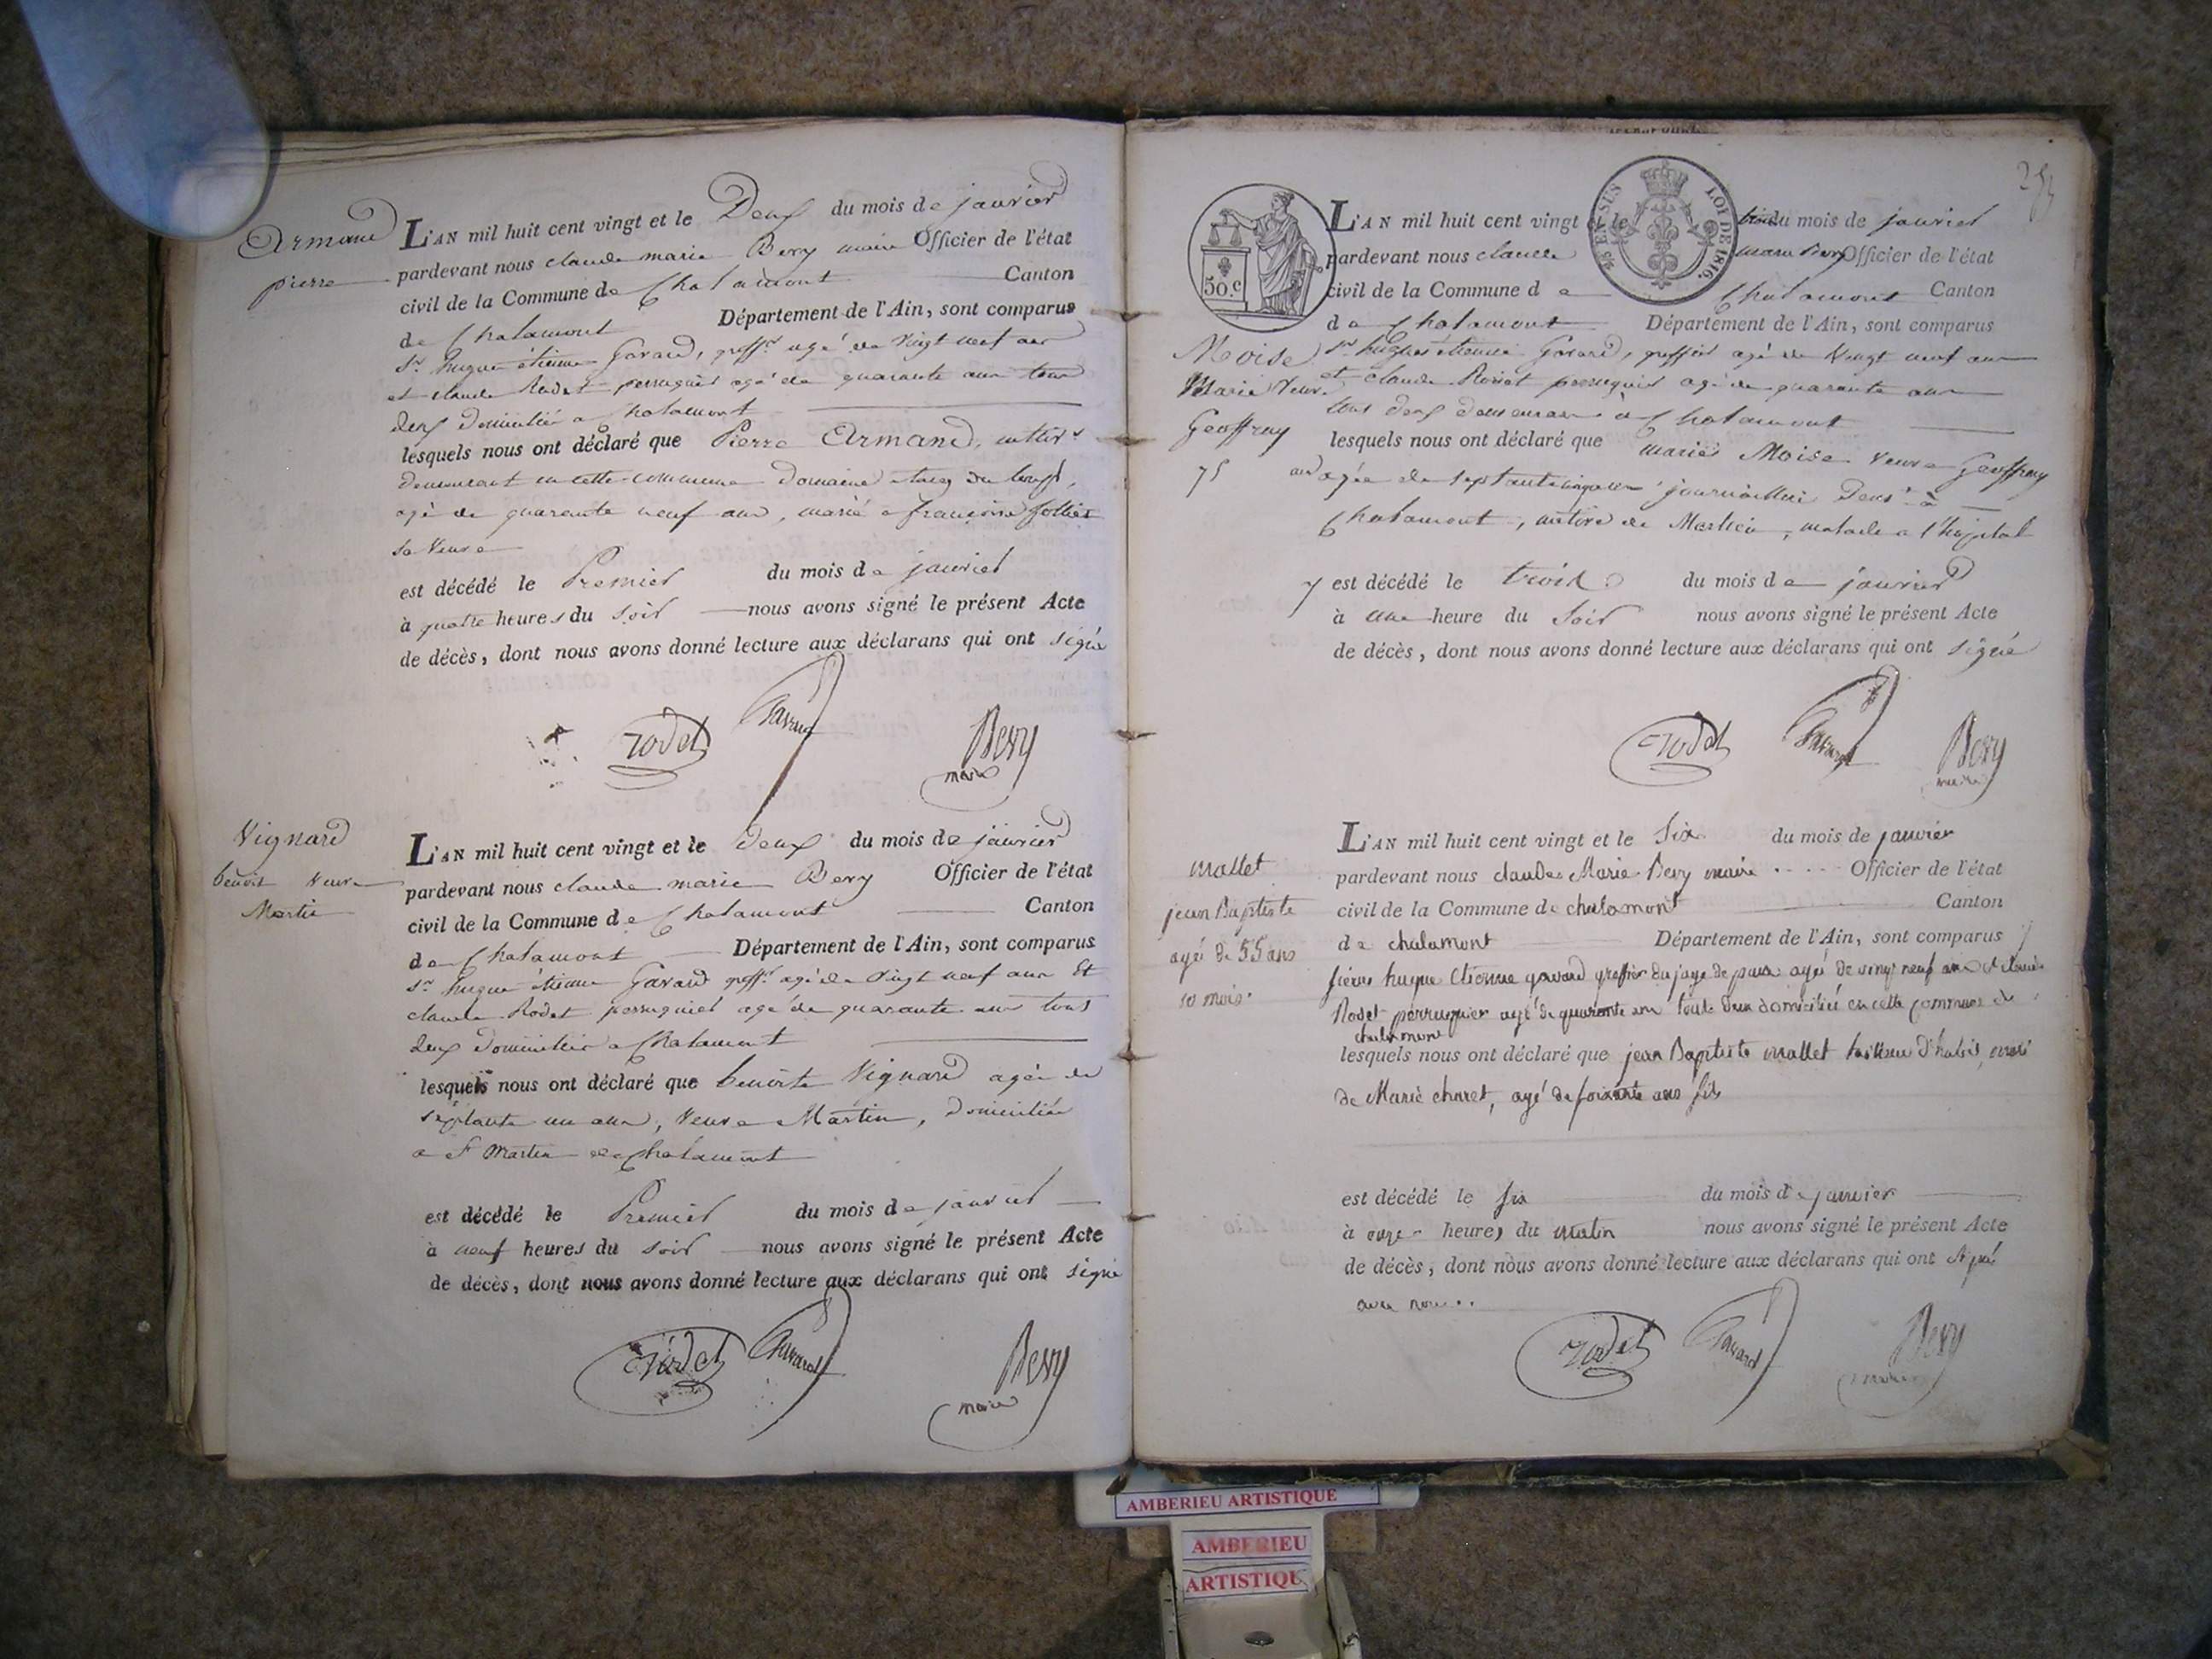 Armand
pierre
L'AN mil huit cent vingt et le Deux du mois de janvier
pardevant nous claude marie Bevy maire Officier de l'état
civil de la Commune de Chalamont Canton
de Chalamont Département de l'Ain, sont comparus
Sr hugue étienne Gavard, greffr agé de vingt neuf ans
et claude Rodet perruquier agé de quarante ans tous
deux domiciliés a Chalamont
lesquels nous ont déclaré que Pierre Armand,
demeurant en cette commune Domaine
agé de quarante neuf ans, marié a françoise
sa Veuve
est décédé le Premier du mois de janvier
à quatre heures du soir nous avons signé le présent Acte
de décès, dont nous avons donné lecture aux déclarans qui ont signé
Rodet Gavard Bevy
maire
Vignard
benoite Veuve
Martin
L'AN mil huit cent vingt et le deux du mois de janvier
pardevant nous claude marie Bevy Officier de l'état
civil de la Commune de Chalamont Canton
de Chalamont Département de l'Ain, sont comparus
Sr hugue étienne Gavard greffr agé de vingt neuf ans Et
claude Rodet perruquier agé de quarante ans tous
deux domiciliés a Chalamont
lesquels nous ont déclaré que benoite Vignard agée de
septante un ans, Veuve Martin, domiciliée
a St Martin de Chalamont
est décédé le Premier du mois de janvier
à neuf heures du soir nous avons signé le présent Acte
de décès, dont nous avons donné lecture aux déclarans qui ont signé
Rodet Gavard Bevy
maire
254
50.c
25 EN SUS LOI DE 1816.
L'AN mil huit cent vingt et le trois du mois de janvier
pardevant nous claude marie Bevy Officier de l'état
civil de la Commune de Chalamont Canton
de Chalamont Département de l'Ain, sont comparus
Moise
Marie Veuve
Geoffray
75 ans
Sr hugues étienne Gavard, greffier agé de Vingt neuf ans
et claude Rodet perruquier agé de quarante ans
tous deux demeurans à Chalamont
lesquels nous ont déclaré que marie Moise Veuve Geoffray
agée de septante cinq ans journalière Demt à
Chalamont, native de, malade a l'hopital
est décédé le trois du mois de janvier
à une heure du Soir nous avons signé le présent Acte
de décès, dont nous avons donné lecture aux déclarans qui ont signé
Rodet Gavard Bevy
maire
mallet
jean Baptiste
agé de 55 ans
10 mois.
L'AN mil huit cent vingt et le Six du mois de janvier
pardevant nous claude Marie Bevy maire Officier de l'état
civil de la Commune de chalamont Canton
de chalamont Département de l'Ain, sont comparus
sieurs hugue Etienne gavard greffier du juge de paix agé de vingt neuf ans et claude
Rodet perruquier agé de quarante ans tout deux domicilié en cette commune de
chalamont
lesquels nous ont déclaré que jean Baptiste mallet tailleur d'habit, mari
de Marie charet, agé de soixante ans
est décédé le six du mois de janvier
à onze heures du matin nous avons signé le présent Acte
de décès, dont nous avons donné lecture aux déclarans qui ont signé
avec nous..
Rodet Gavard Bevy
maire
AMBERIEU ARTISTIQUE
AMBERIEU
ARTISTIQUE